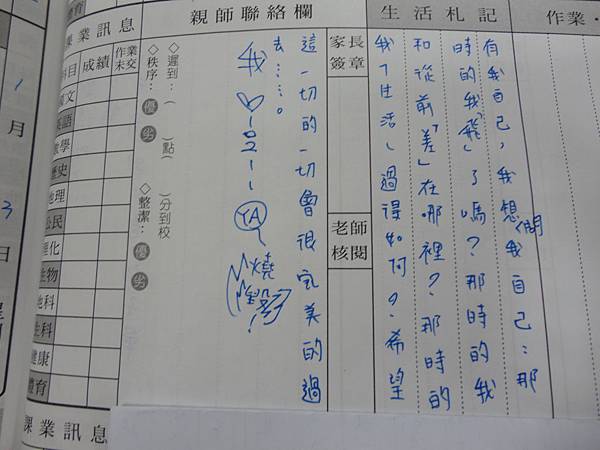 作業・
生活札記
有我自己，我想問我自己：那
時的我「飛」了嗎？那時的我
和從前「差」在哪裡？那時的
我ㄉ生活、過得如何？希望
家長簽章
老師核閱
親師聯絡欄
這一切的一切會很完美的過
去……。
我
YA~
燒
!
◇遲到：（　）點（　）分到校
◇秩序：優 劣
◇整潔：優 劣
體育
課業訊息
科目 成績 作業未交
國文
英語
數學
歷史
地理
公民
理化
生物
地科
生科
健康
體育
課業訊息
1
月
3
日